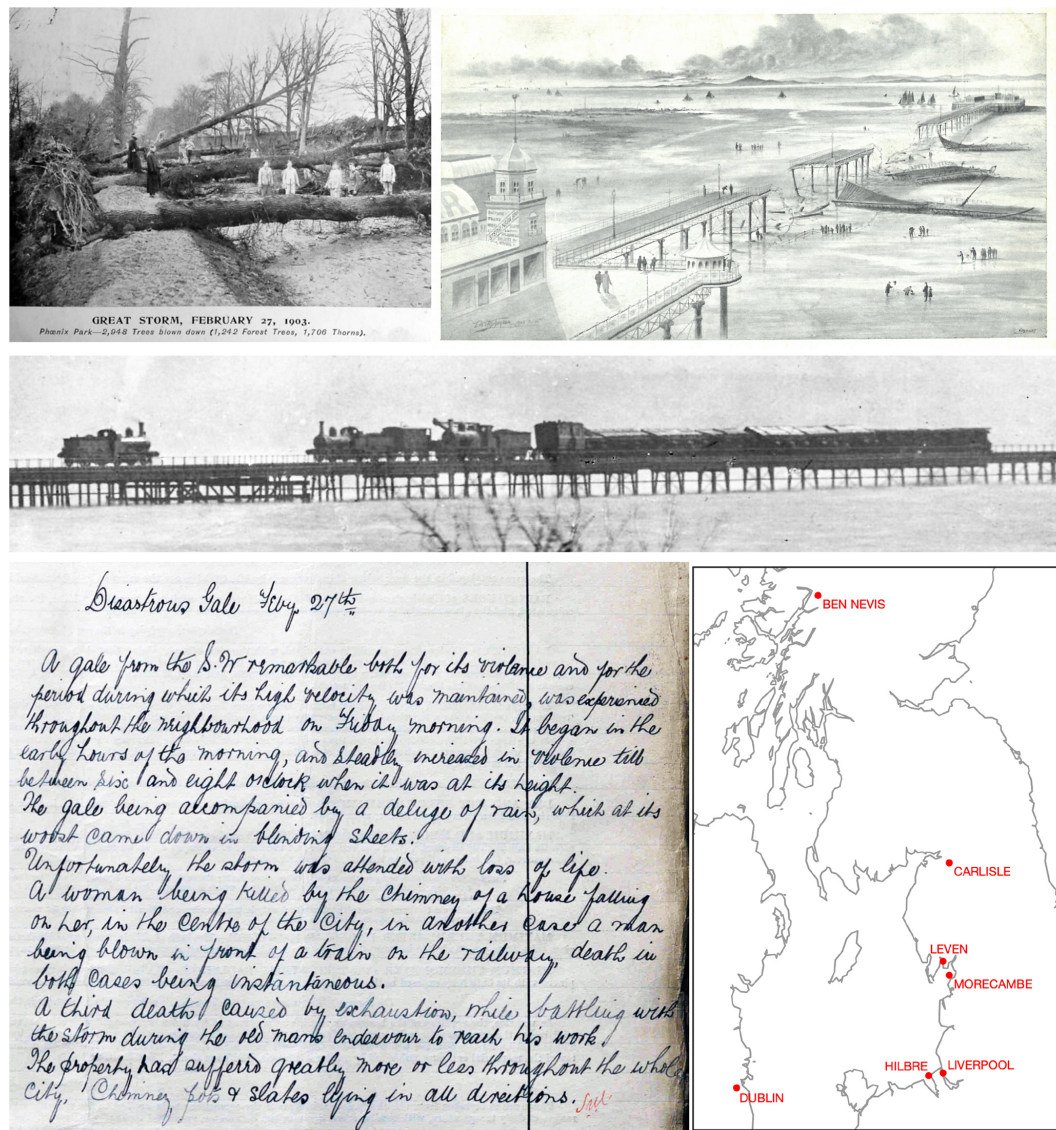 GREAT STORM, FEBRUARY 27, 1903.
Phœnix Park—2,948 Trees blown down (1,242 Forest Trees, 1,706 Thorns).
Disastrous Gale Feby. 27th
A gale from the S.W remarkable both for its violence and for the
period during which its high velocity was maintained, was experienced
throughout the neighbourhood on Friday morning. It began in the
early hours of the morning, and steadily increased in violence till
between six and eight o'clock when it was at its height.
The gale being accompanied by a deluge of rain, which at its
worst came down in blinding sheets.
Unfortunately the storm was attended with loss of life.
A woman being killed by the chimney of a house falling
on her, in the centre of the City, in another case a man
being blown in front of a train on the railway, death in
both cases being instantaneous.
A third death caused by exhaustion, while battling with
the storm during the old mans endeavour to reach his work.
The property has sufferd greatly more or less throughout the whole
City, Chimney pots & slates lying in all directions.
BEN NEVIS
CARLISLE
LEVEN
MORECAMBE
HILBRE
LIVERPOOL
DUBLIN